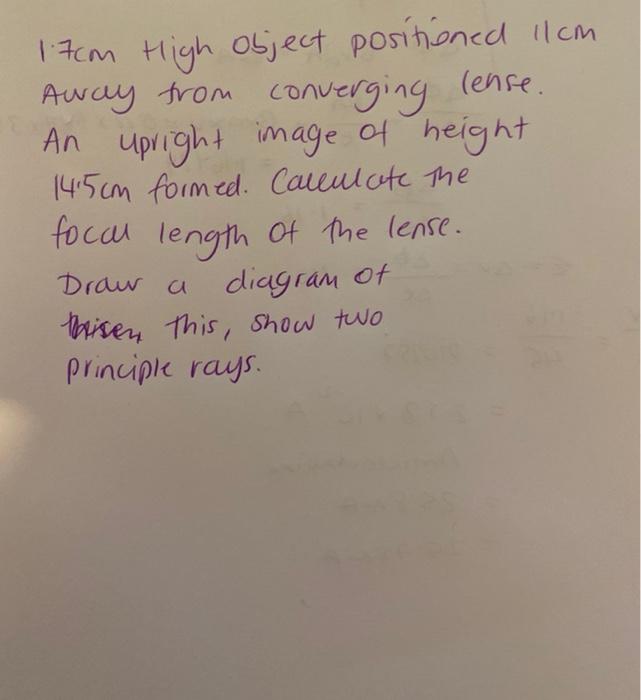 1.7cm High Object positioned 11cm
Away from converging lense.
An upright image of height
14.5cm formed. Calculate the
focal length of the lense.
Draw a diagram of
this, show two
principle rays.